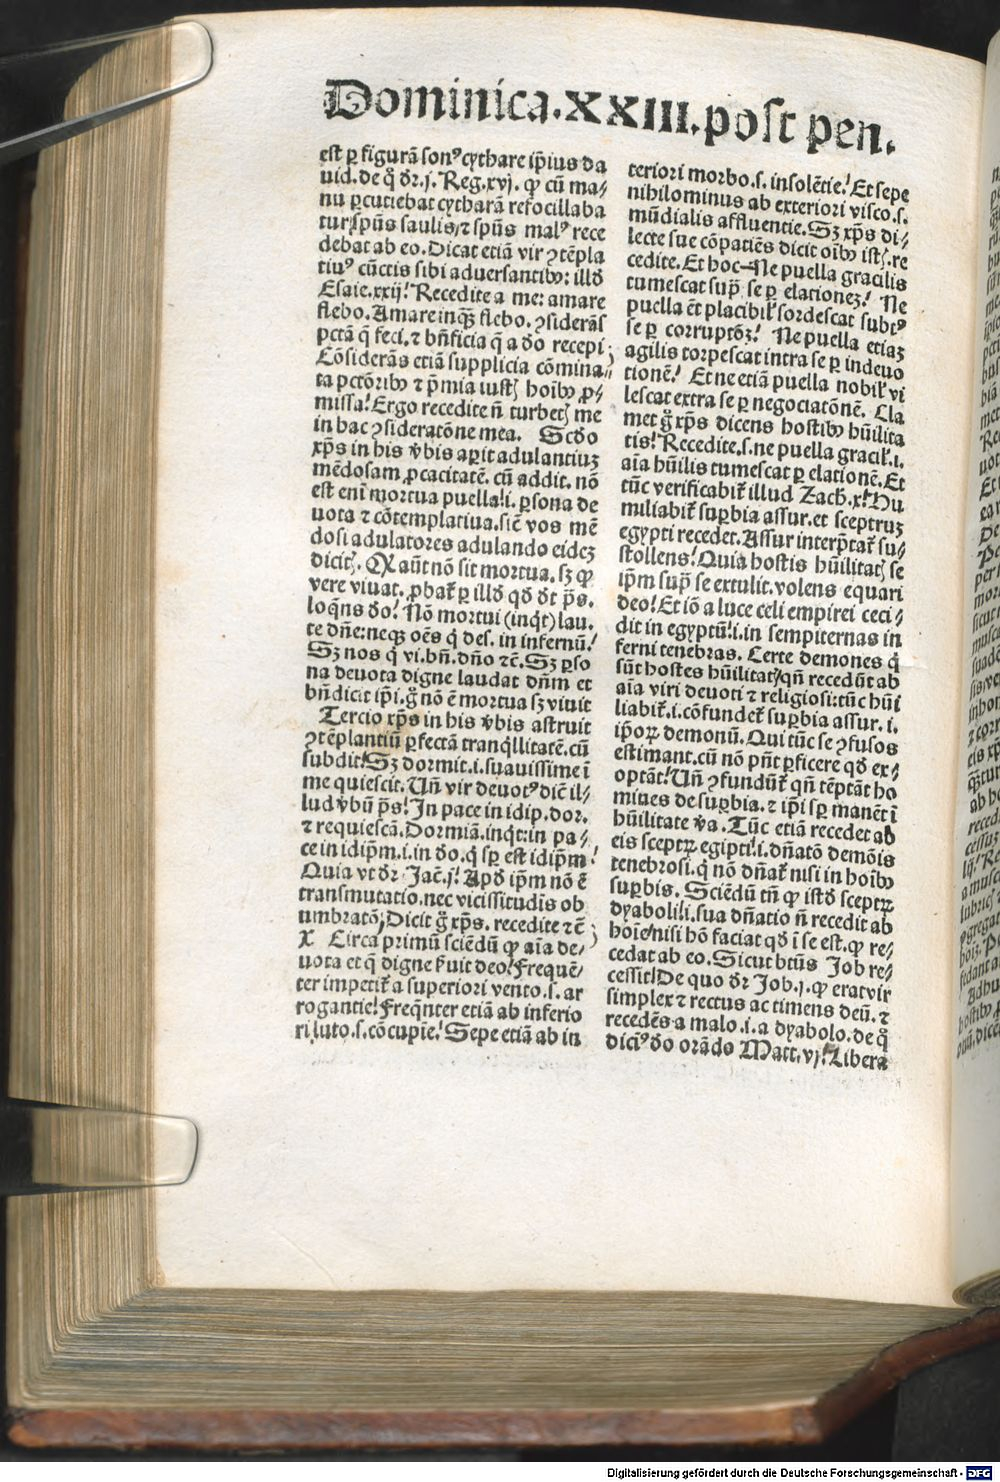 Dominica.XXIII.post pen.
est ꝑ figurã sonꝰ cythare ip̃ius da
uid. de q̊ dr̃.j. Reg.xvj. ꝙ cũ ma-
nu ꝑcutiebat cytharã refocillaba
tur sp̃us saulis/⁊ sp̃us malꝰ rece
debat ab eo. Dicat etiã vir ꝯtẽpla
tiuꝰ cũctis sibi aduersantibꝰ: illd̃
Esaie.xxij! Recedite a me: amare
flebo. Amare inqͣꝫ flebo. ꝯsiderãs
pctã q̃ feci. ⁊ bñficia q̃ a d̃o recepi
Cõsiderãs etiã supplicia cõmina-
ta pctõribꝰ ⁊ p̃mia iustꝭ hoĩbꝰ ꝓ-
missa! Ergo recedite ñ turbetꝭ me
in hac ꝯsideratõne mea. Scd̃o
xp̃s in his v̾bis aꝑit adulantiuꝫ
mẽdosam ꝓcacitatẽ. cũ addit. nõ
est eni᷑ mortua puella!i. ꝑsona de
uota ⁊ cõtemplatiua. sic̃ vos mẽ
dosi adulatores adulando eidẽꝫ
dicitꝭ. Qꝫ aũt nõ sit mortua. sꝫ ꝙ
vere viuat. ꝓbat᷑ ꝑ illd̃ qd̃ dt̃ p̃s.
loq̃ns d̃o! Nõ mortui (inq̇t) lau.
te dñe: neqꝫ oẽs q̇ des. in infernũ!
Sꝫ nos q̇ vi. bñ. dño ⁊c̃. Sꝫ ꝑso
na deuota digne laudat dñm et
bñdicit ip̃i. g̊ nõ ẽ mortua sꝫ viuit
Tercio xp̃s in his v̾bis astruit
ꝯtẽplantiũ ꝑfectã tranq̇llitatẽ. cũ
subdit! Sꝫ dormit.i. suauissime ĩ
me quiescit. Uñ vir deuotꝰ dic̃ il-
lud v̾bũ p̃s! In pace in idip. dor.
⁊ requiescã. Dormiã. inq̇t: in pa-
ce in idip̃m.i. in d̃o. q̇ sꝑ est idip̃m!
Quia vt dr̃ Jac̃.j! Apd̃ ip̃m nõ ẽ
transmutatio. nec vicissitudis ob
umbratõ. Dicit g̊ xp̃s. recedite ⁊c̃
X Circa primũ sciẽdũ ꝙ aĩa de-
uota et q̃ digne s̾uit deo! Frequẽ-
ter impetit᷑ a superiori vento.s. ar
rogantie! Freq̃nter etiã ab inferio
ri luto.s. cõcupiẽ! Sepe etiã ab in
teriori morbo.s. insolẽtie! Et sepe
nihilominus ab exteriori visco.s.
mũdialis affluentie. Sꝫ xp̃s di-
lecte sue cõpatiẽs dicit oĩbꝰ istꝭ. re
cedite. Et hoc-Ne puella gracilis
tumescat suꝑ se ꝑ elationeꝫ! Ne
puella et̃ placibil᷑ sordescat subtꝰ
se ꝑ corruptõꝫ! Ne puella etiaꝫ
agilis torpescat intra se ꝑ indeuo
tionẽ! Et ne etiã puella nobil᷑ vi
lescat extra se ꝑ negociatõnẽ. Cla
met g̊ xp̃s dicens hostibꝰ hũilita
tis! Recedite.s. ne puella gracil᷑.i.
aĩa hũilis tumescat ꝑ elationẽ. Et
tũc verificabit᷑ illud Zach̃.x! Hu
miliabit᷑ suꝑbia assur. et sceptruꝫ
egypti recedet. Assur interp̃tat᷑ su-
stollens! Quia hostis hũilitatꝭ se
ip̃m suꝑ se extulit. volens equari
deo! Et iõ a luce celi empirei ceci-
dit in egyptũ!i. in sempiternas in
ferni tenebras. Certe demones q̇
sũt hostes hũilitatꝭ/qñ recedũt ab
aĩa viri deuoti ⁊ religiosi: tũc hũi
liabit᷑.i. cõfundet᷑ suꝑbia assur.i.
ip̃oꝝ demonũ. Qui tũc se ꝯfusos
estimant. cũ nõ pñt ꝑficere qd̃ ex-
optãt! Uñ ꝯfundũt᷑ qñ tẽptãt ho
mines de suꝑbia. ⁊ ip̃i sꝑ manẽt ĩ
hũilitate v̾a. Tũc etiã recedet ab
eis sceptꝝ egipti!i. dñatõ demõis
tenebrosi. q̇ nõ dñat᷑ nisi in hoĩbꝰ
suꝑbis. Sciẽdũ tñ ꝙ istd̃ sceptꝝ
dyaboli!i. sua dñatio ñ recedit ab
hoĩe/nisi hõ faciat qd̃ ĩ se est. ꝙ re-
cedat ab eo. Sicut btũs Job re-
cessit! De quo dr̃ Job.j. ꝙ erat vir
simplex ⁊ rectus ac timens deũ. ⁊
recedẽs a malo.i. a dyabolo. de q̊
dicit᷑ d̃o orãdo Matt.vj! Libera
Digitalisierung gefördert durch die Deutsche Forschungsgemeinschaft - DFG